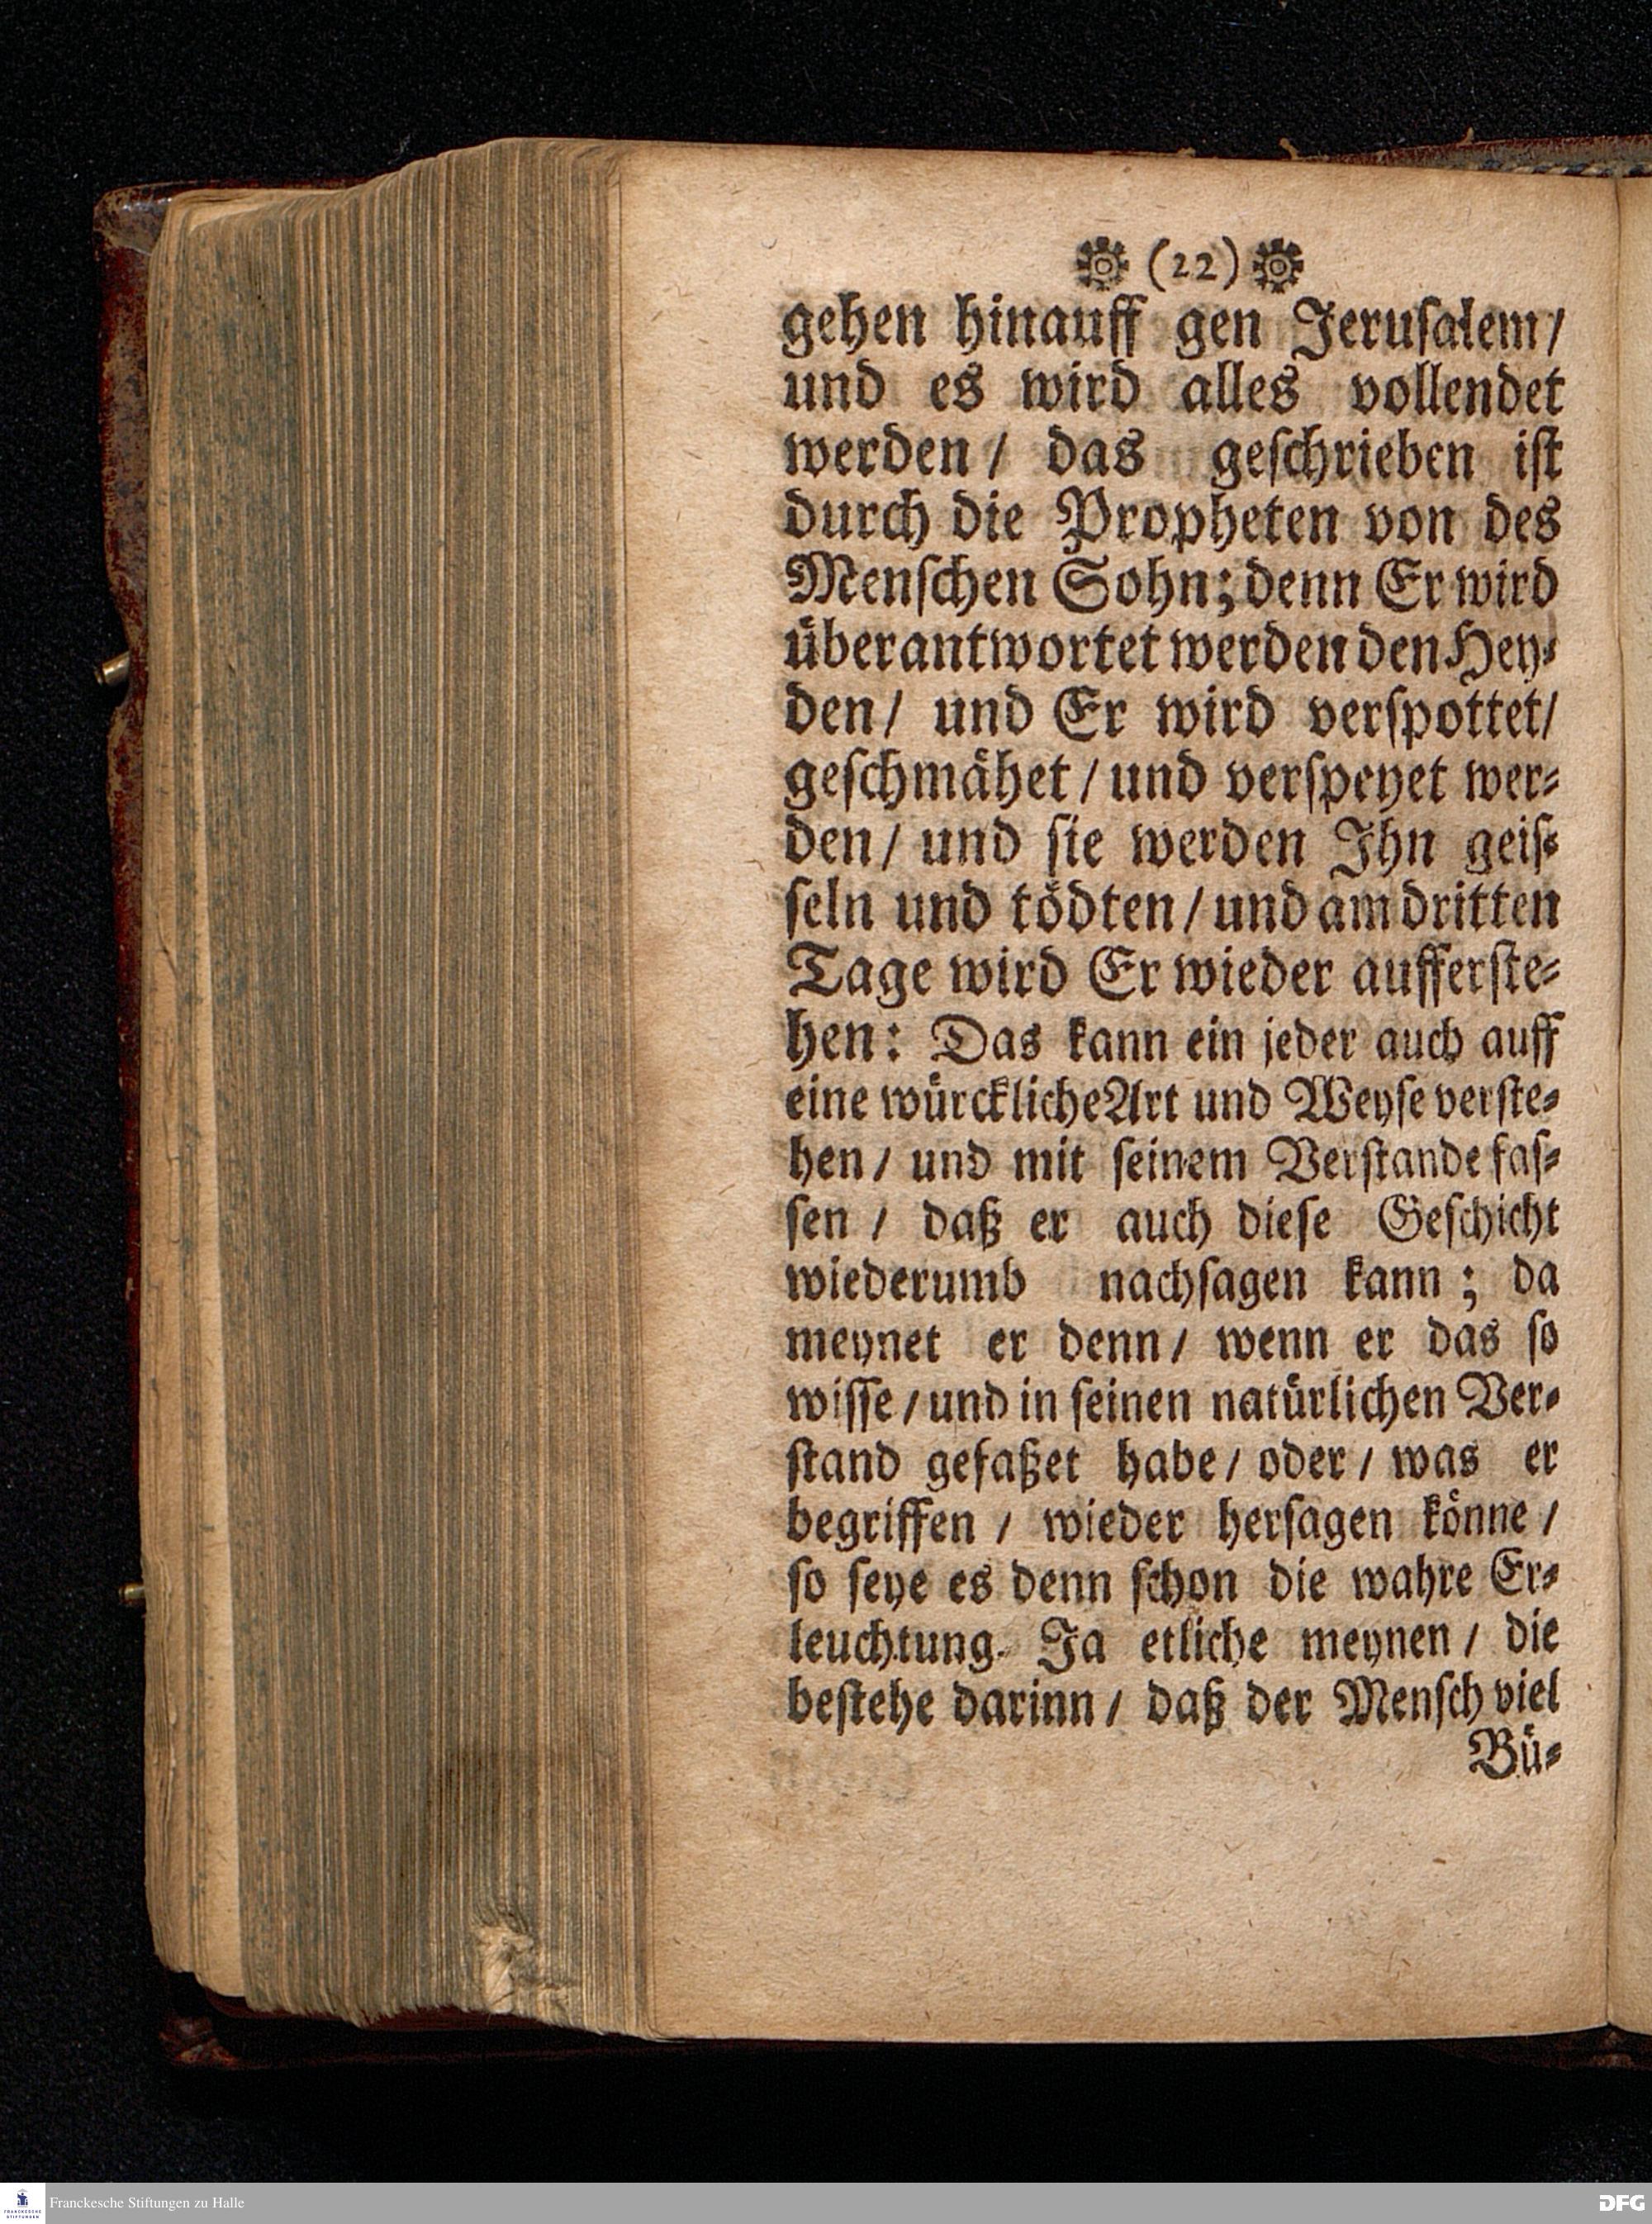 (22)
gehen hinauff gen Jeruſalem/
und es wird alles vollendet
werden / das geſchrieben iſt
durch die Propheten von des
Menſchen Sohn; denn Er wird
überantwortet werden den Hey⸗
den/ und Er wird verſpottet/
geſchmähet / und verſpeyet wer⸗
den/ und ſie werden Ihn geiſ⸗
ſeln und tödten / und am dritten
Tage wird Er wieder aufferſte⸗
hen: Das kann ein jeder auch auff
eine würckliche Art und Weyſe verſte⸗
hen / und mit ſeinem Verſtande faſ⸗
ſen / daß er auch dieſe Geſchicht
wiederumb nachſagen kann ; da
meynet er denn / wenn er das ſo
wiſſe / und in ſeinen natürlichen Ver⸗
ſtand gefaßet habe / oder / was er
begriffen / wieder herſagen könne /
ſo ſeye es denn ſchon die wahre Er⸗
leuchtung. Ja etliche meynen / die
beſtehe darinn / daß der Menſch viel
Bü⸗
Franckesche Stiftungen zu Halle
DFG